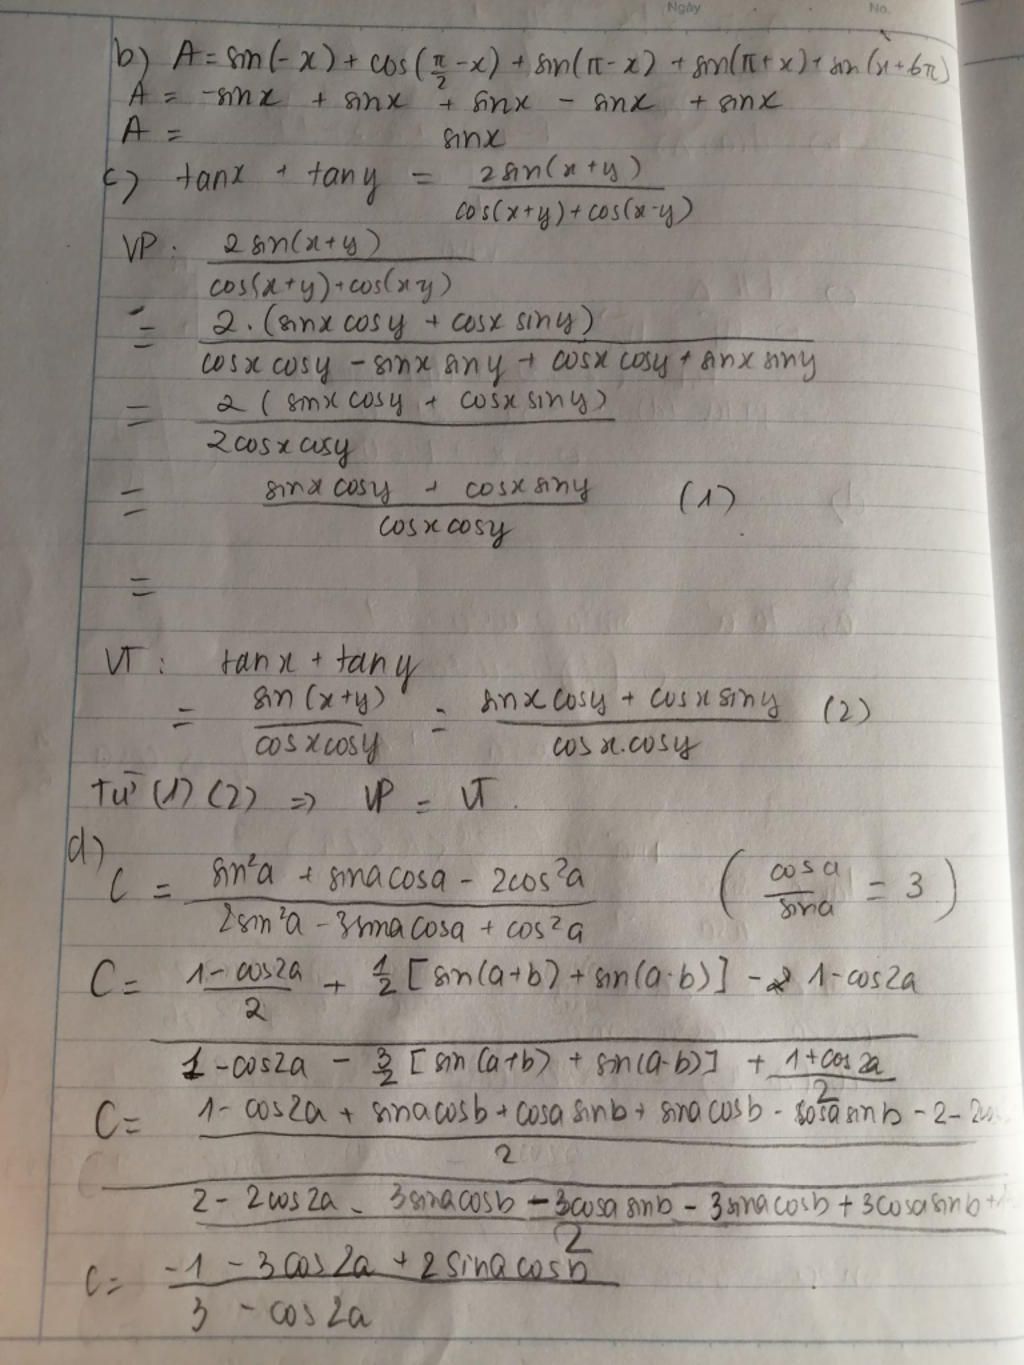 Ngày No.
b) A = sin(-x) + cos(π/2 - x) + sin(π - x) + sin(π + x) + sin(x + 6π)
A = -sinx + sinx + sinx - sinx + sinx
A = sinx
c) tanx + tany = 2sin(x+y) / cos(x+y) + cos(x-y)
VP: 2sin(x+y) / cos(x+y) + cos(xy)
= 2.(sinx cosy + cosx siny) / cosx cosy - sinx siny + cosx cosy + sinx siny
= 2 (sinx cosy + cosx siny) / 2cosx cosy
= sinx cosy + cosx siny / cosx cosy (1)
=
VT: tanx + tany
= sin(x+y) / cosx cosy = sinx cosy + cosx siny / cosx.cosy (2)
Từ (1) (2) => VP = VT.
d)
C = sin²a + sina cosa - 2cos²a / 2sin²a - 3sina cosa + cos²a (cosa / sina = 3)
C = 1-cos2a / 2 + 1/2 [sin(a+b) + sin(a-b)] - 1-cos2a
1-cos2a - 3/2 [sin(a+b) + sin(a-b)] + 1+cos2a / 2
C = 1 - cos2a + sina cosb + cosa sinb + sina cosb - cosa sinb - 2 - 2cos / 2
2 - 2cos2a - 3sina cosb - 3cosa sinb - 3sina cosb + 3cosa sinb + / 2
C = -1 - 3cos2a + 2sina cosb / 3 - cos2a